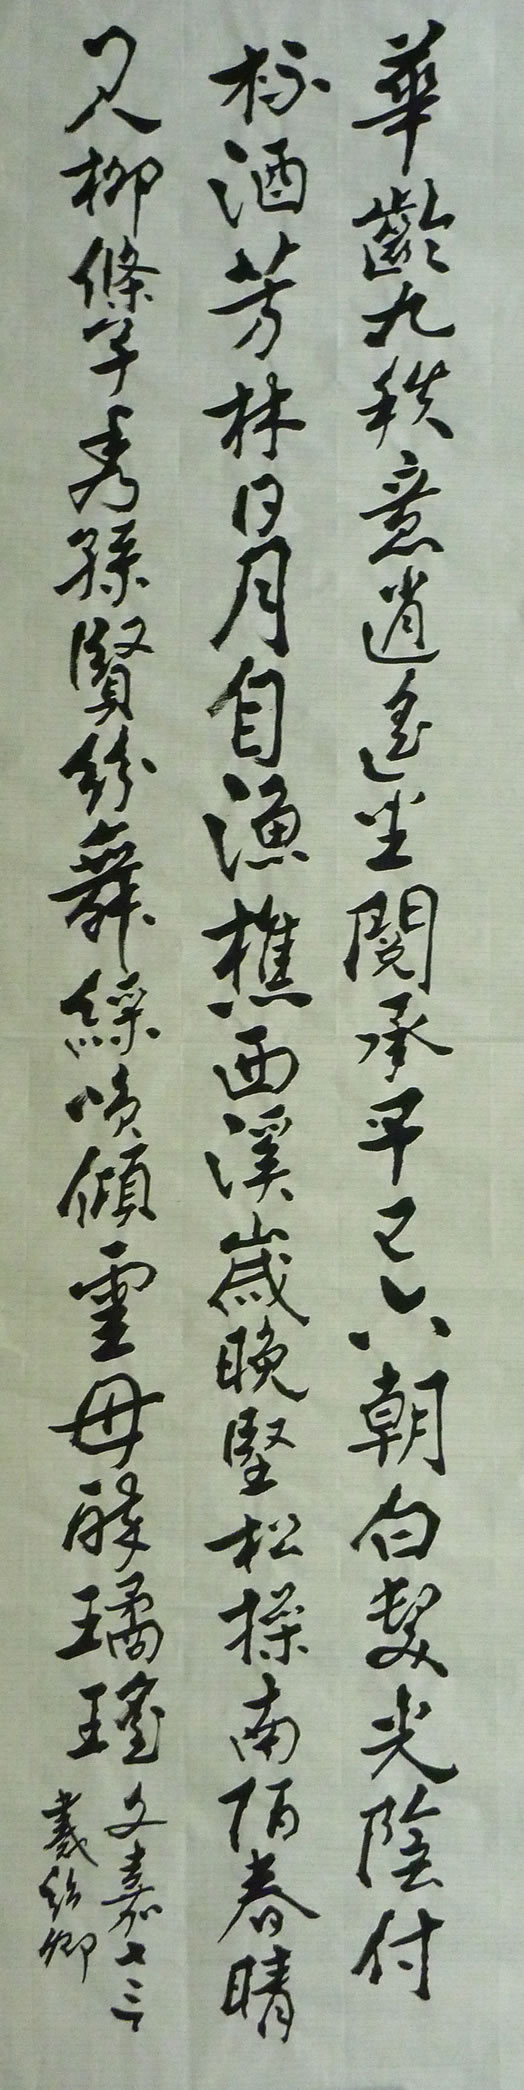 華齡九秩意逍遙坐閱承平已六朝白髮光陰付
杯酒芳林日月自漁樵西溪歲晚堅松操南陌春晴
見柳條子秀孫賢紛舞綵咲傾雲母醉璚瑤
文嘉七言
紹卿